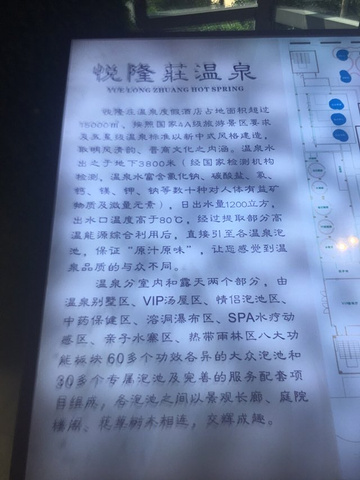 悦隆莊溫泉
YUE LONG ZHUANG HOT SPRING
悦隆庄温泉度假酒店占地面积超过
15000㎡，按照国家4A级旅游景区要求
及五星级温泉标准以新中式风格建造，
取明风清韵、晋商文化之内涵。温泉水
出之于地下3800米（经国家检测机构
检测，温泉水富含氯化钠、碳酸盐、氡、
锶、镁、钾、钠等数十种对人体有益矿
物质及微量元素），日出水量1200立方，
出水口温度高于80℃，经过提取部分高
温能源综合利用后，直接引至各温泉泡
池，保证“原汁原味”，让您感觉到温
泉品质的与众不同。
温泉分室内和露天两个部分，由
温泉别墅区、VIP汤屋区、情侣泡池区、
中药保健区、溶洞瀑布区、SPA水疗动
感区、亲子水寨区、热带雨林区八大功
能板块60多个功效各异的大众泡池和
30多个专属泡池及完善的服务配套项
目组成，各泡池之间以景观长廊、庭院
楼阁、花草树木相连，交辉成趣。